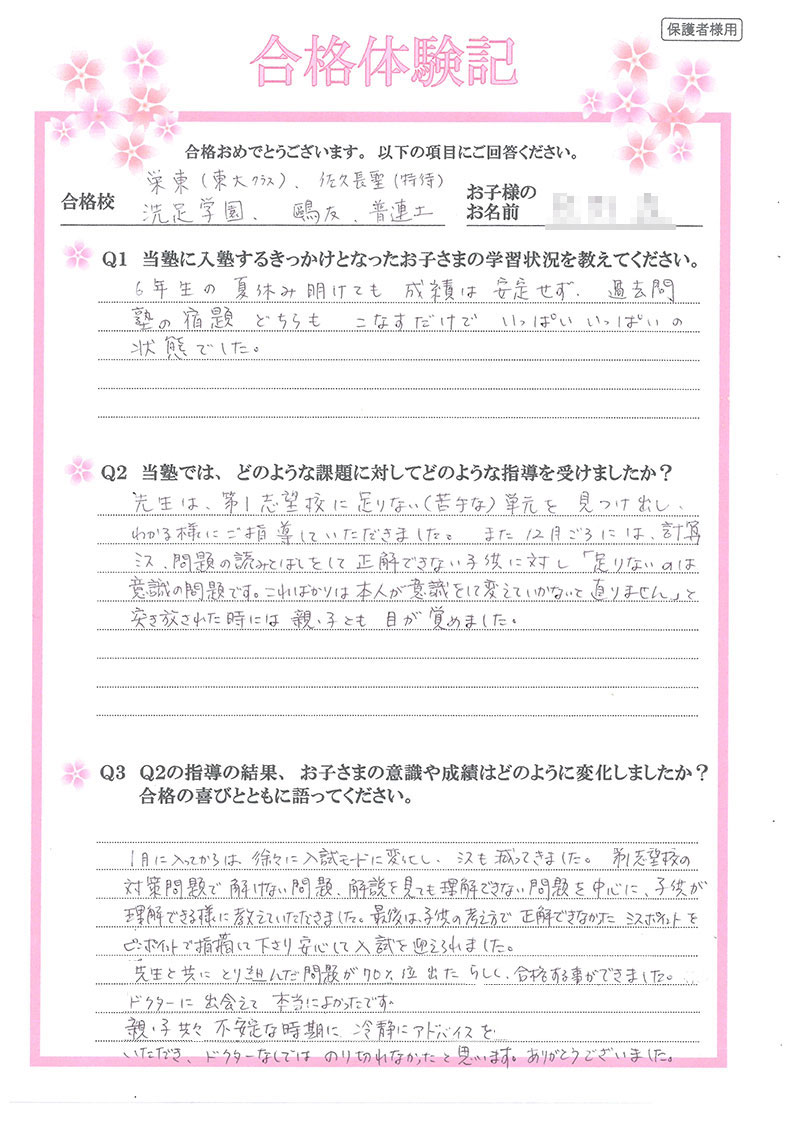 保護者様用
合格体験記
合格おめでとうございます。以下の項目にご回答ください。
合格校
栄東(東大クラス)、佐久長聖(特待)
洗足学園、鴎友、普連土
お子様の
お名前
Q1 当塾に入塾するきっかけとなったお子さまの学習状況を教えてください。
6年生の夏休み明けても成績は安定せず、過去問
塾の宿題どちらもこなすだけでいっぱいいっぱいの
状態でした。
Q2 当塾では、どのような課題に対してどのような指導を受けましたか?
先生は、第1志望校に足りない(苦手な)単元を見つけ出し、
わかる様にご指導していただきました。また12月ごろには、計算
ミス、問題の読みとばしをして正解できない子供に対し「足りないのは
意識の問題です。こればかりは本人が意識をして変えていかないと直りません」と
突き放された時には親・子とも目が覚めました。
Q3 Q2の指導の結果、お子さまの意識や成績はどのように変化しましたか?
合格の喜びとともに語ってください。
1月に入ってからは、徐々に入試モードに変化し、ミスも減ってきました。第1志望校の
対策問題で解けない問題、解説を見ても理解できない問題を中心に、子供が
理解できる様に教えていただきました。最後は、子供の考え方で正解できなかったミスポイントを
ピーポイントで指摘して下さり安心して入試を迎えられました。
先生と共にとり組んだ問題が70%位出たらしく、合格する事ができました。
ドクターに出会えて本当によかったです。
親・子共々不安定な時期に冷静にアドバイスを
いただき、ドクターなしではのり切れなかったと思います。ありがとうございました。